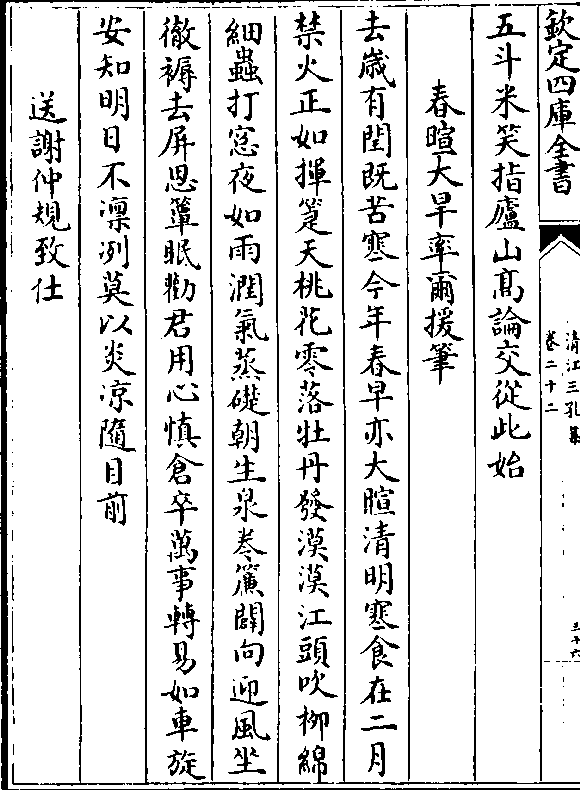 欽定四庫全書
清江三孔集
卷二十二
三十六
五斗米笑指廬山髙論交從此始
春暄大旱率爾援筆
去嵗有閏既苦寒今年春早亦大暄清明寒食在二月
禁火正如揮箑天桃花零落牡丹發漠漠江頭吹柳綿
細蟲打窓夜如雨潤氣蒸礎朝生泉巻簾闢向迎風坐
徹褥去屏思簟眠勸君用心慎倉卒萬事轉易如車旋
安知明日不凛冽莫以炎凉隨目前
送謝仲規致仕